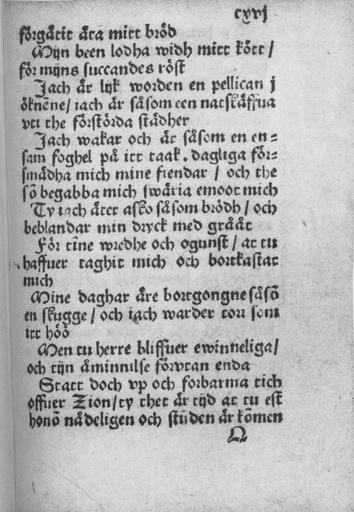 cxvj
förgätit äta mitt bröd
Mijn been lodha widh mitt kött /
för mijns succandes röst
Jach är lijk worden en pellican j
öknēne / iach är såsom een natskäffua
vtt the förstörda städher
Jach wakar och är såsom en en=
sam foghel på itt taak. dagliga för=
smädha mich mine fiendar / och the
sō begabba mich swäria emoot mich
Ty iach äter asko såsom brödh / och
beblandar min dryck med grååt
För tīne wredhe och ogunst / at tu
haffuer taghit mich och bortkastat
mich
Mine daghar äre bortgongne såsō
en skugge / och iach warder torr som
itt höö
Men tu herre bliffuer ewinneliga /
och tijn äminnilse förvtan enda
Statt doch vp och forbarma tich
offuer Zion / ty thet är tijd at tu est
honō nädeligen och stūden är kōmen